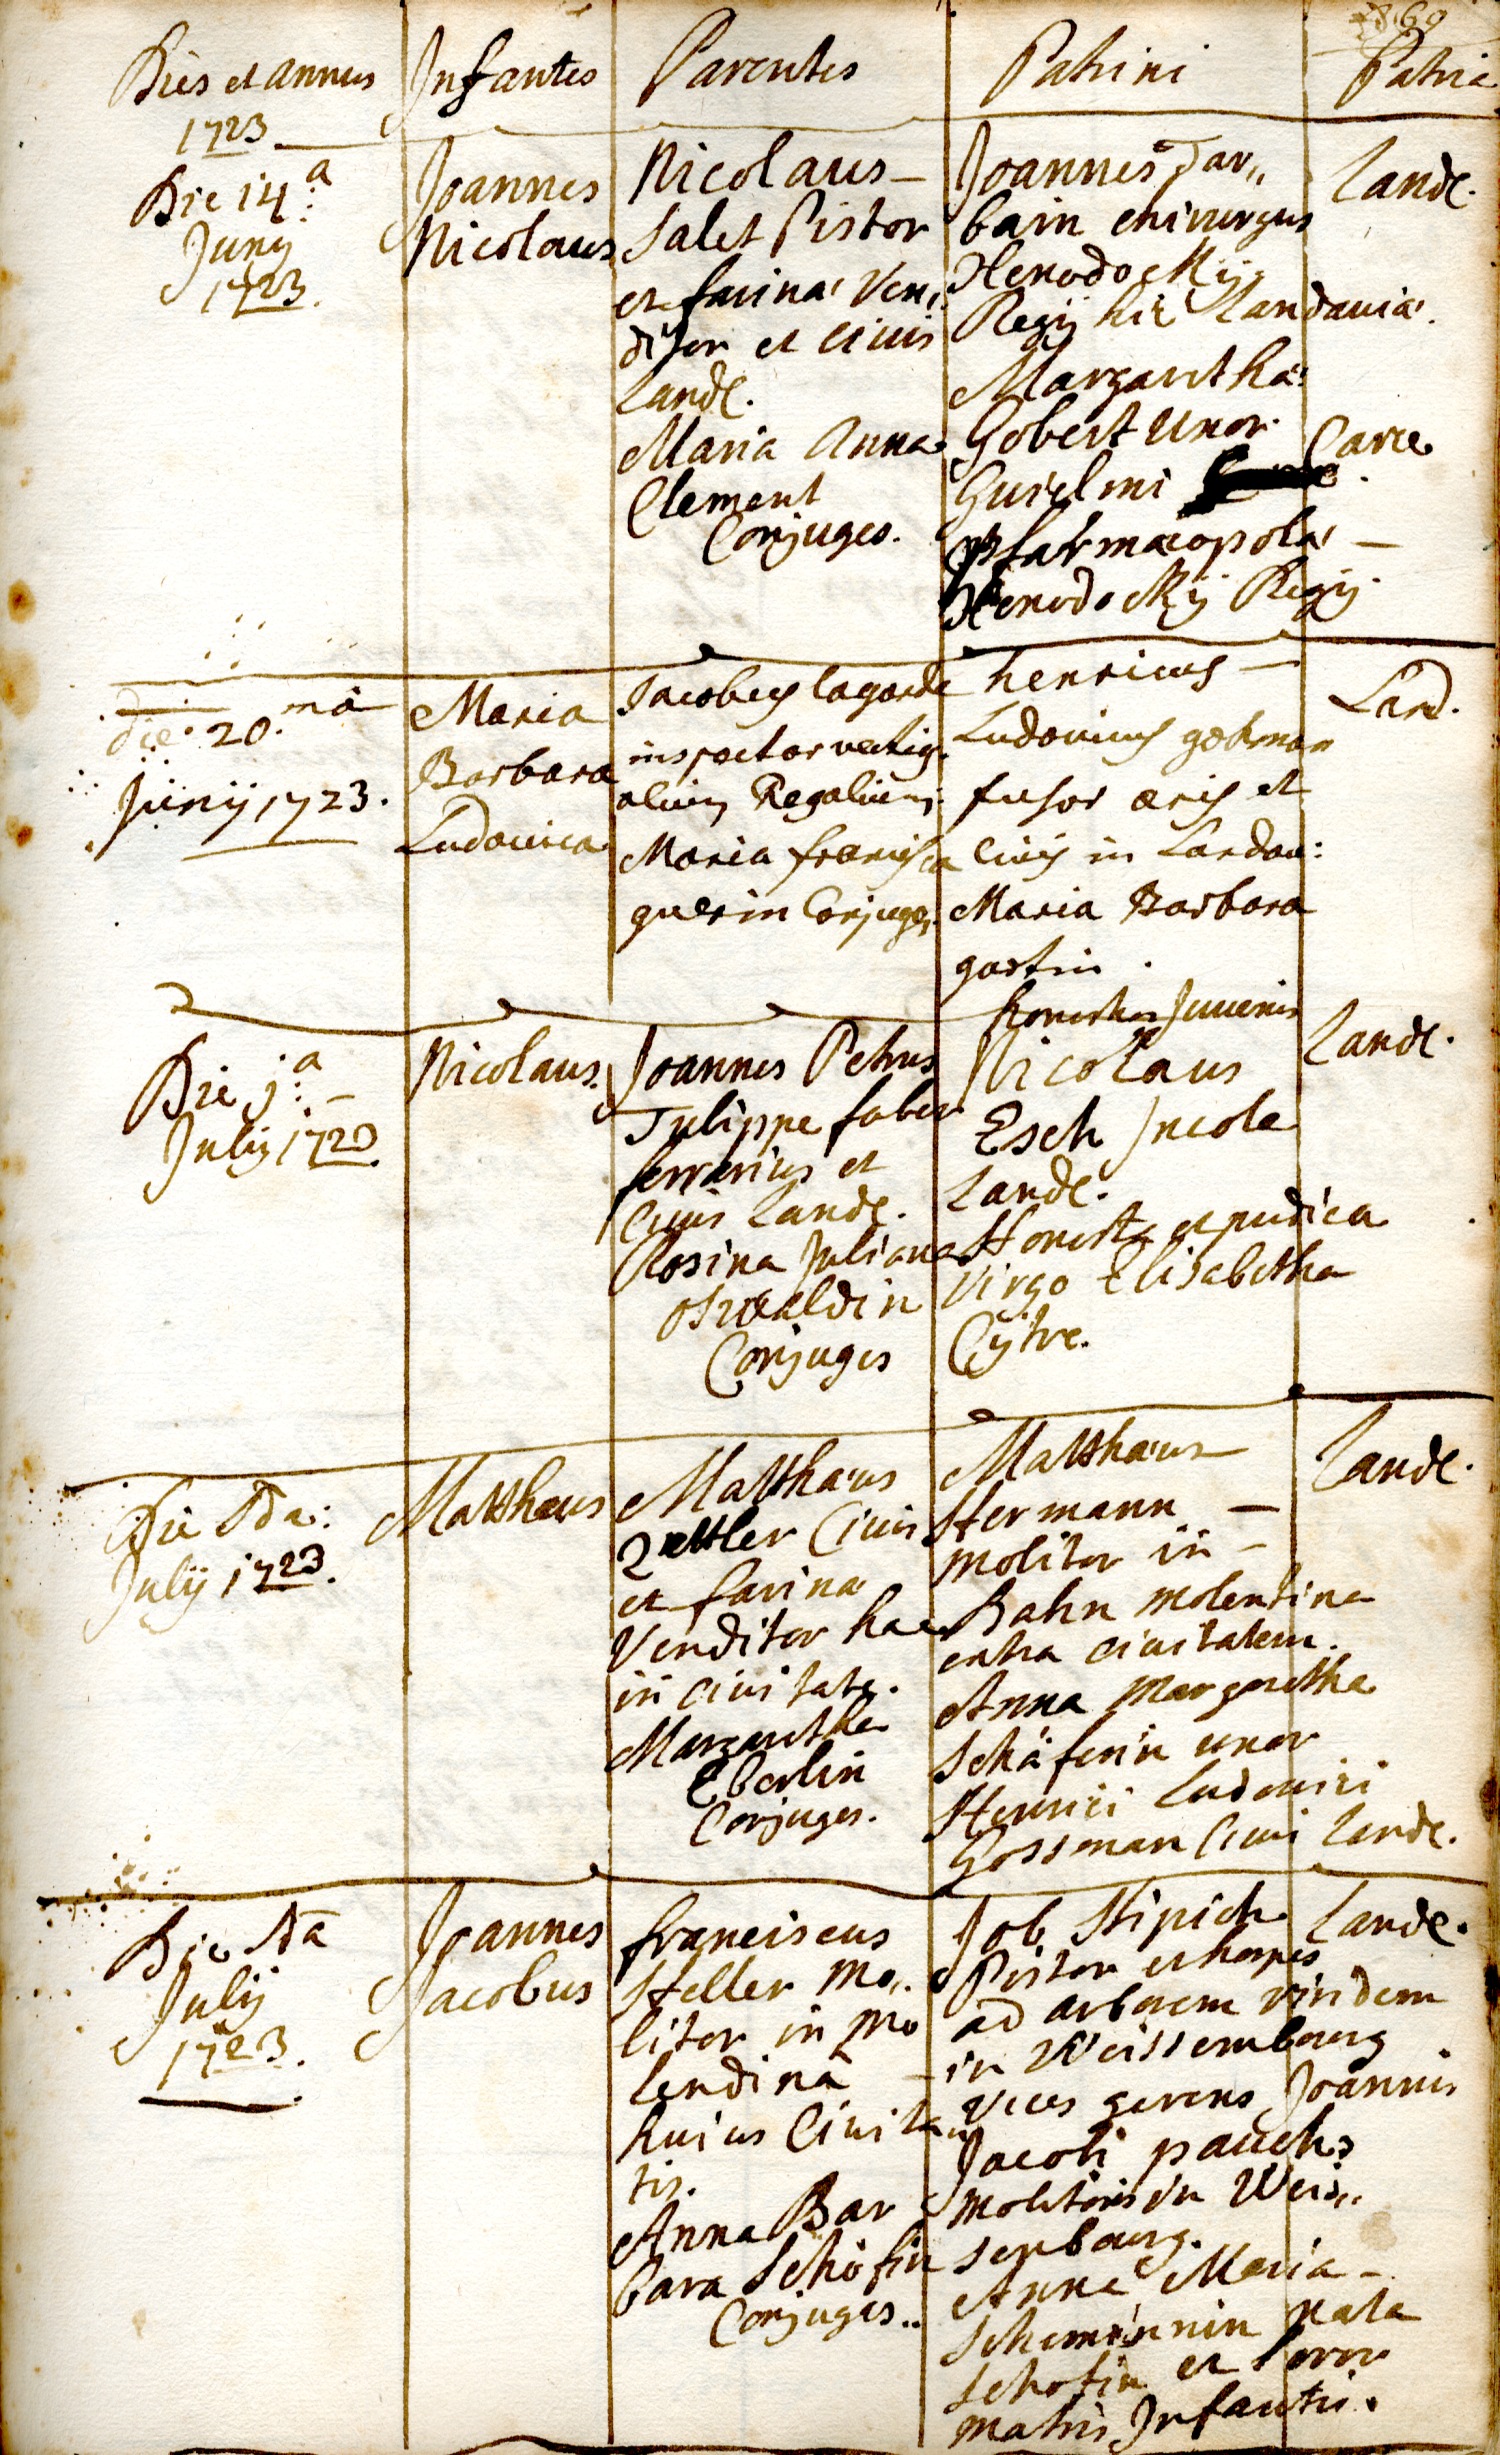 Dies et annus Infantes Parentes Patrini Patria
1723
Die 14.a
Junij
1723.
Joannes
Nicolaus
Nicolaus
Salet Pistor
et farinæ Ven„
ditor et Civis
Landc.
Maria Anna
Clement
Conjuges.
Joannes Tar„
bain chirurgus
Xenodochij
Regij hic Landaviæ.
Margaretha
Gobert Uxor
Guielmi Carre
Pharmacopolæ
Xenodochij Regij.
Landc.
die 20.ma
Junij 1723.
Maria
Barbara
Ludovica
Jacobus lagarde
inspector vectig
alium Regalium
Maria francisca
querin Conjuges
henricus
Ludovicus gosman
fusor æris et
Civis in Landau:
Maria Barbara
gastin.
Land.
Die j.a
Julij 1723
Nicolaus.
Joannes Petrus
Tulippe faber
ferrarius et
Civis Landc.
Rosina Juliana
Oswaldin
Conjuges
honestus Juvenis
Nicolaus
Esch Incola
Landc.
Honesta et pudica
Virgo Elisabetha
Cijtre.
Landc.
Die 2da:
Julij 1723.
Matthæus
Matthæus
Zettler Civis
et farinæ
Venditor hac
in civitate.
Margaretha
Eberlin
Conjuges.
Matthæus
Hermann
molitor in
Bahn molendina
extra civitatem.
Anna Margaretha
Schäferin uxor
Henrici Ludovici
Gossman Civis Landc.
Landc.
Die
Julij
1723.
Joannes
Jacobus
franciscus
Steller Mo„
litor in Mo
lendina
huius Civita„
tis.
Anna Bar
bara Schöfin
Conjuges..
Job Stipich
Pistor et hospes
ad arborem viridem
in Weissembourg
vices gerens Joannis
Jacobi pauchs
molitoris in Weis„
senbourg.
Anna Maria
nata
Schofin et soror
matris Infantis.
Landc.